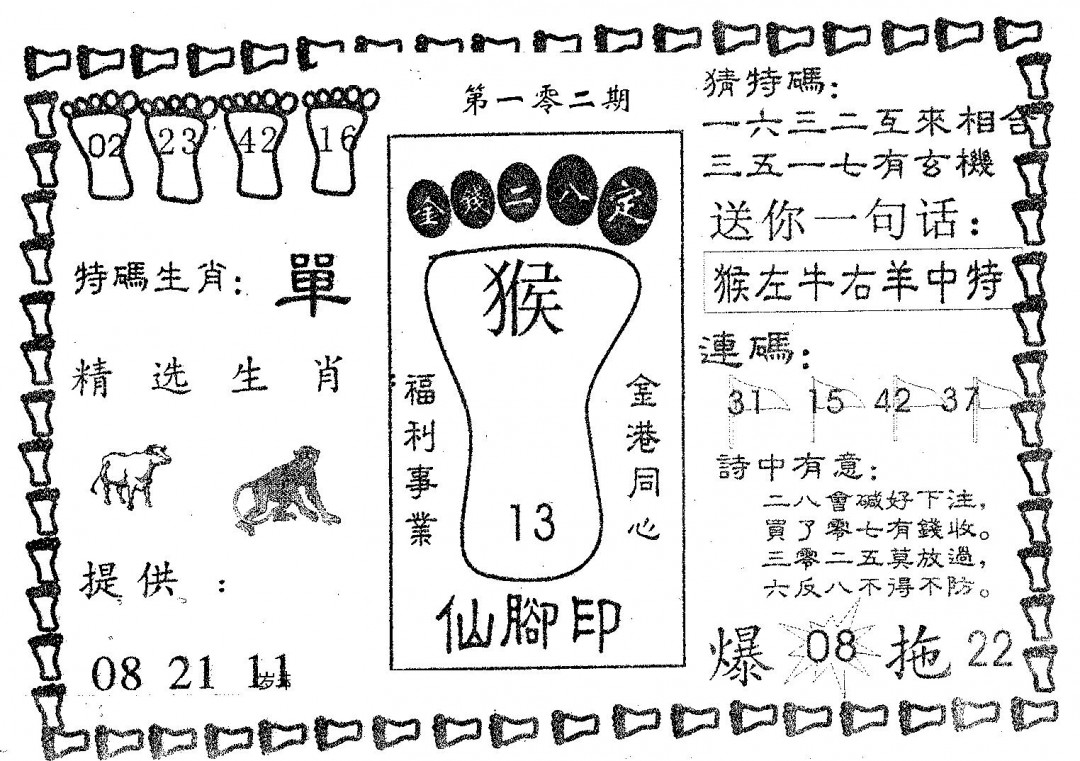 第一零二期
02 23 42 16
特碼生肖：單
精选生肖
提供：
08 21 11
金錢二八定
猴
福利事業
金港同心
13
仙腳印
猜特碼：
一六三二互來相合
三五一七有玄機
送你一句话：
猴左牛右羊中特
連碼：
31 15 42 37
詩中有意：
二八會碱好下注，
買了零七有錢收。
三零二五莫放過，
六反八不得不防。
爆 08 拖 22